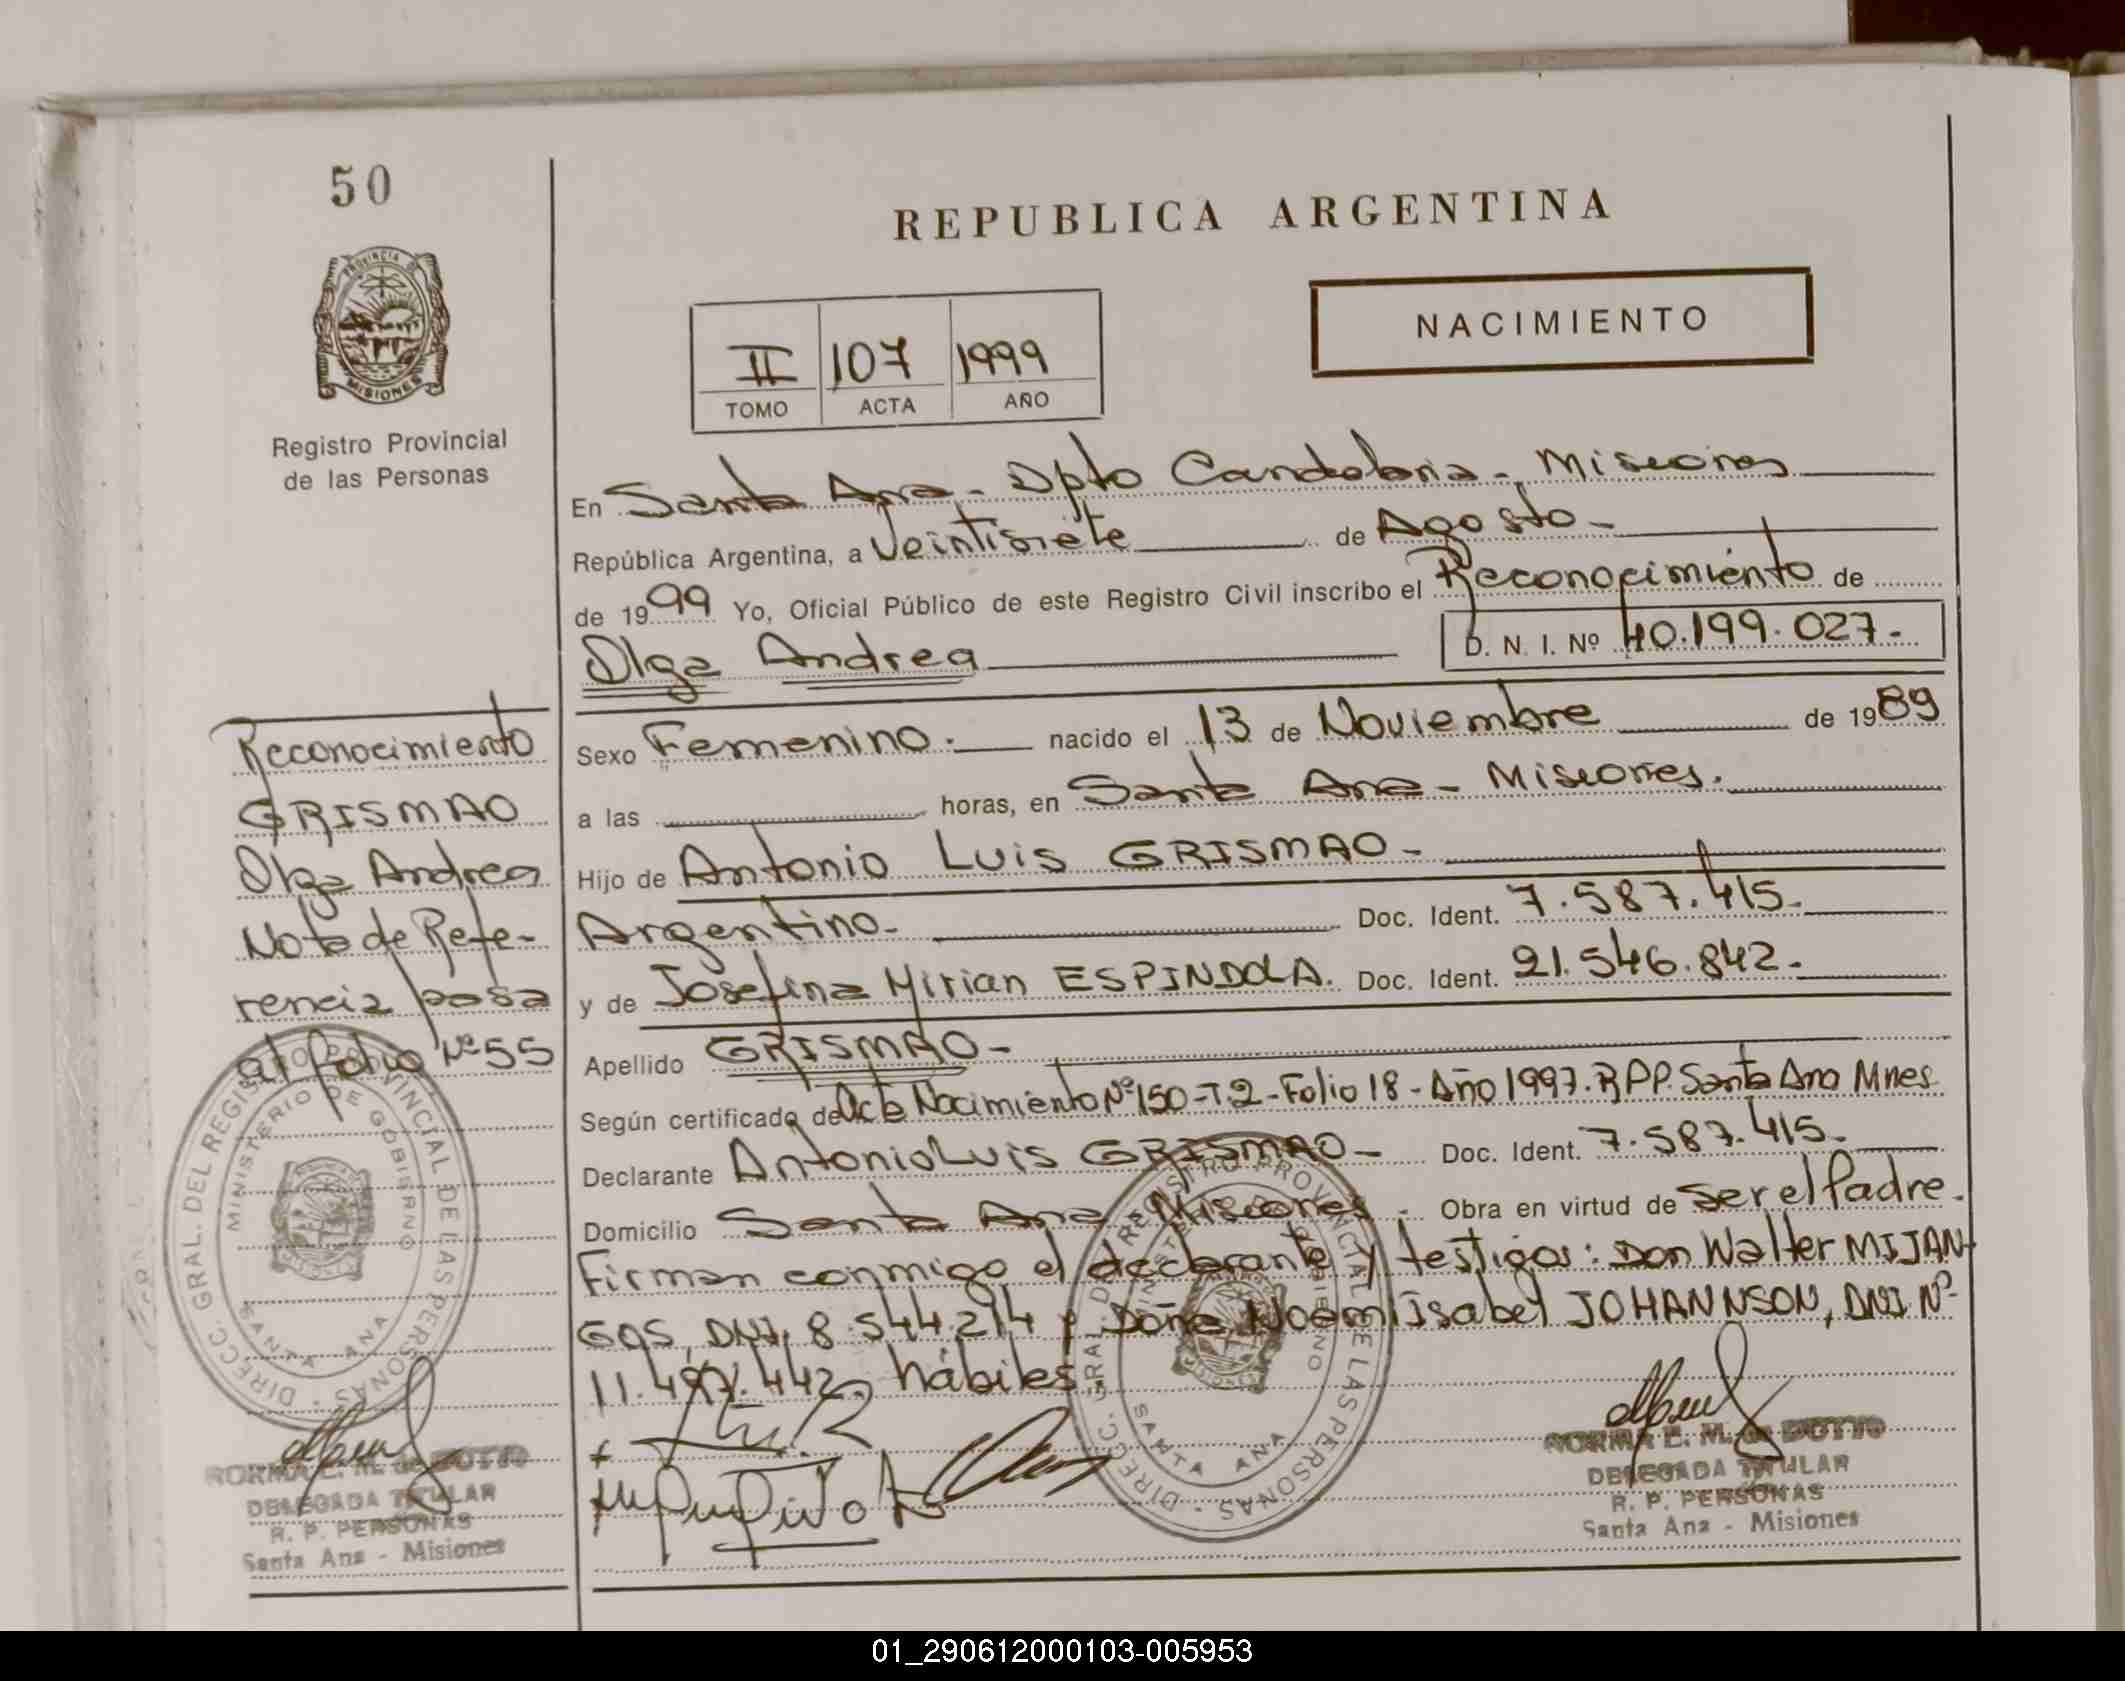 50
PROVINCIA DE
MISIONES
Registro Provincial
de las Personas
REPUBLICA ARGENTINA
II 107 1999
TOMO ACTA AÑO
NACIMIENTO
En Santa Ana - Dpto Candelaria - Misiones
República Argentina, a Veintisiete de Agosto -
de 1999 Yo, Oficial Público de este Registro Civil inscribo el Reconocimiento de
Olga Andrea D. N. I. Nº 40.199.027 -
Sexo Femenino. nacido el 13 de Noviembre de 1989
a las horas, en Santa Ana - Misiones.
Hijo de Antonio Luis GRISMAO -
Argentino - Doc. Ident. 7.587.415 -
y de Josefina Mirian ESPINDOLA. Doc. Ident. 21.546.842 -
Apellido GRISMAO -
Según certificado de Acta Nacimiento Nº 150 - T. 2 - Folio 18 - Año 1997. RPP. Santa Ana Mnes
Declarante Antonio Luis GRISMAO - Doc. Ident. 7.587.415 -
Domicilio Santa Ana Misiones - Obra en virtud de ser el Padre.
Firman conmigo el declarante y testigos: Don Walter MIJAN-
GOS, DNI. 8.544.214 y Doña Noemi Isabel JOHANNSON, DNI. Nº
442, hábiles
Reconocimiento
GRISMAO
Olga Andrea
Nota de Refe-
rencia pasa
al folio Nº 55
DIRECC. GRAL. DEL REGISTRO PROVINCIAL DE LAS PERSONAS -
MINISTERIO DE GOBIERNO
SANTA ANA
NORMA E. M. de DOTTO
DELEGADA TITULAR
R. P. PERSONAS
Santa Ana - Misiones
DIRECC. GRAL. DEL REGISTRO PROVINCIAL DE LAS PERSONAS -
MINISTERIO DE GOBIERNO
SANTA ANA
NORMA E. M. de DOTTO
DELEGADA TITULAR
R. P. PERSONAS
Santa Ana - Misiones
01_290612000103-005953